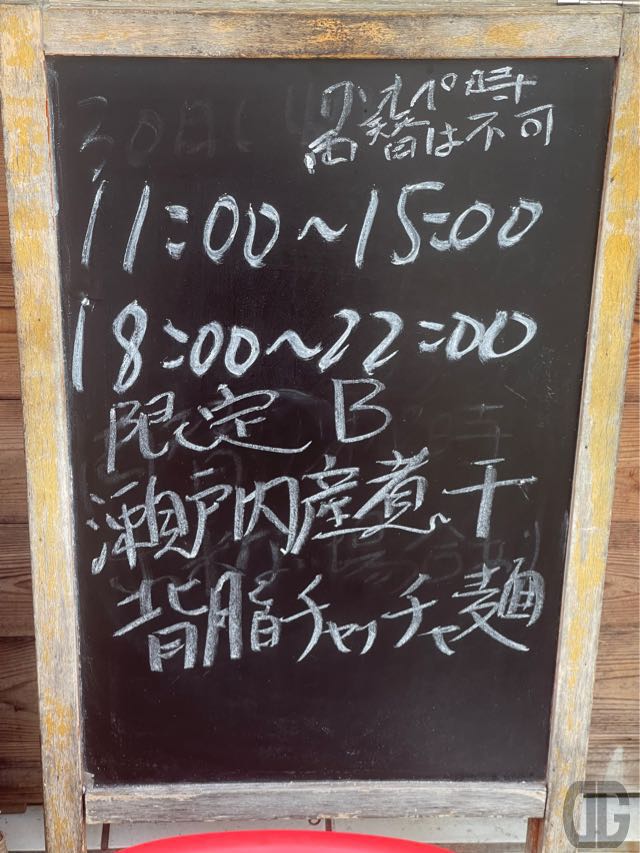 ワンオペ時
両替は不可
11:00～15:00
18:00～22:00
限定 B
瀬戸内産煮干
背脂チャッチャ麺